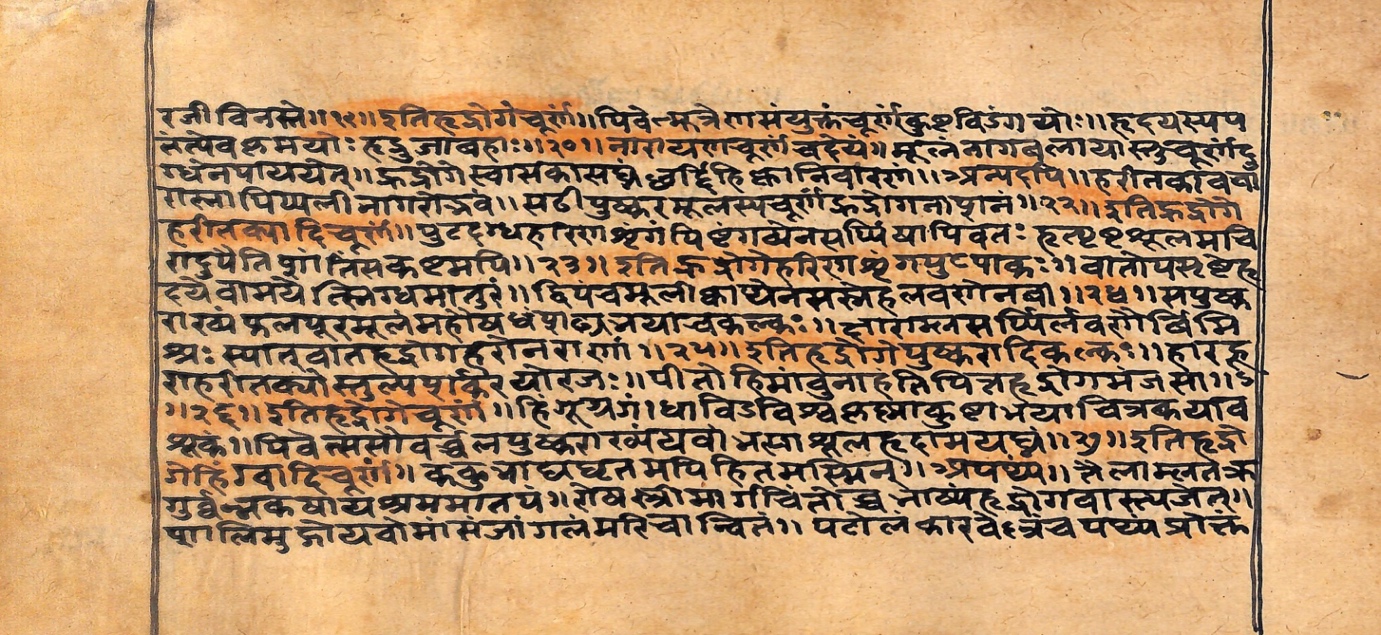 रजीविनस्ते॥१९॥इतिहृद्रोगेचूर्णं॥पिबेन्मूत्रेणसंयुक्तंचूर्णंकुष्टविडंगयोः॥हृदयस्यप
तंत्येवकृमयोः हृद्रुजावहाः॥२०॥नारायणचूर्णंचदेयं॥मूलंनागबलायास्तुचूर्णंदु
ग्धेनपाययेत्॥हृद्रोगेस्वासकासघ्नंछर्द्दिहिक्कानिवारणं॥अन्यदपि॥हरीतकीवचा
रास्नापिप्पलीनागरोद्भवं॥सटीपुष्करमूलस्यचूर्णंहृद्रोगनाशनं॥२२॥इतिहृद्रोगे
हरीतक्यादिचूर्णं॥पुटदग्धहरिणशृंगंपिष्टंगव्येनसर्प्पिषापिबतः हृत्पृष्टशूलमचि
रादुपैतिशांतिंसकष्टमपि॥२३॥इतिहृद्रोगेहरिणशृंगपुटपाकः॥वातोपसृष्टेहृ
दयेवामयेत्स्निग्धमातुरं॥द्विपंचमूलीक्वाथेनसस्नेहलवणेनवा॥२४॥सपुष्क
राख्यंफलपूरमूलंमहौषधंशठ्यभयाचकल्कः॥क्षाराम्लसर्प्पिर्लवणैर्विमि
श्रः स्यात्वातहृद्रोगहरोनराणां॥२५॥इतिहृद्रोगेपुष्करादिकल्कः॥हारहू
राहरीतक्योस्तुल्यशर्करयोरजः॥पीतोहिमांबुनाहंतिपित्तहृद्रोगमंजसा॥
॥२६॥इतिहृद्रोगेचूर्णं॥हिंगूग्रगंधाविडविश्वकृष्णाकुष्टाभयाचित्रकयाव
शूकं॥पिबेत्ससौवर्च्चलपुष्कराख्यंयवांभसाशूलहृदामयघ्नं॥२७॥इतिहृद्रो
गेहिंग्वादिचूर्णं॥ककुभाद्यघृतमपिहितमस्मिन्॥अपथ्यं॥तैलाम्लतक्र
गुर्वन्नकषायश्रममातपं॥रोषस्त्रीमार्गचिंतोच्चभाष्यंहृद्रोगवांस्त्यजेत्॥
शालिमुद्गोयवोमांसंजांगलंमरिचान्वितं॥पटोलंकारवेल्लंचपथ्यंप्रोक्तं